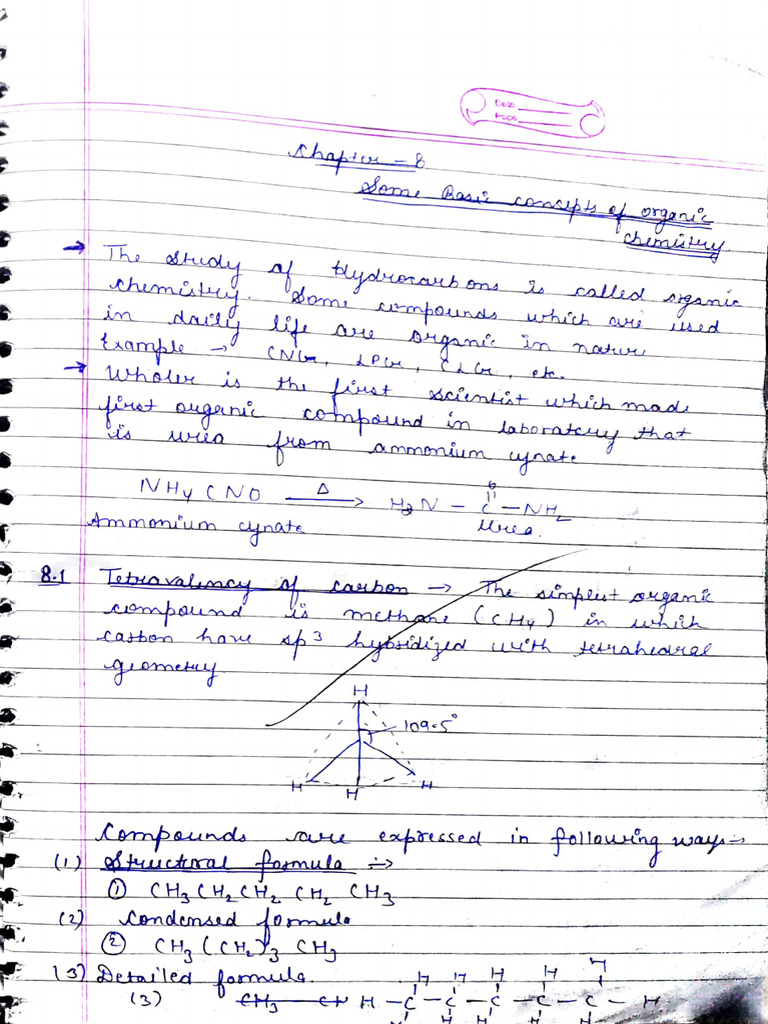 Chapter - 8
Some Basic concepts of organic
chemistry.
→ The study of Hydrocarbons is called organic
chemistry. Some compounds which are used
in daily life are organic in nature
Example → CNG, LPG, CLG, etc.
→ Wholer is the first scientist which made
first organic compound in laboratory that
is urea from ammonium cynate
NH4 CNO —Δ→ H2N - C - NH2
O
Ammonium cynate Urea.
8.1 Tetravalency of carbon → The simplest organic
compound is methane (CH4) in which
carbon have sp3 hybridized with tetrahedral
geometry
H
109.5°
H H H
Compounds are expressed in following ways →
(1) Structural formula :→
① CH3 CH2 CH2 CH2 CH3
(2) Condensed formula
② CH3 (CH2)3 CH3
(3) Detailed formula.
H H H H H
(3) CH3 - CH H - C - C - C - C - C - H
H H H H